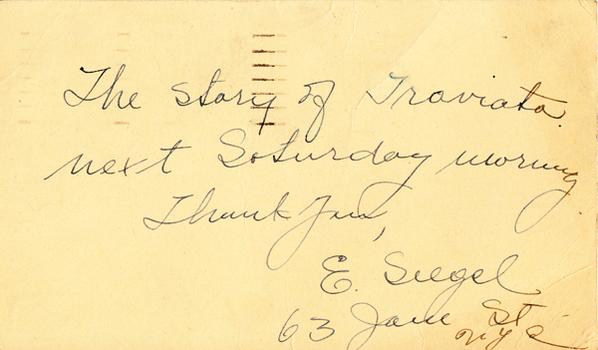 The Story of Traviata.
next Saturday morning
Thank You,
E. Siegel
63 Jane St
NYC